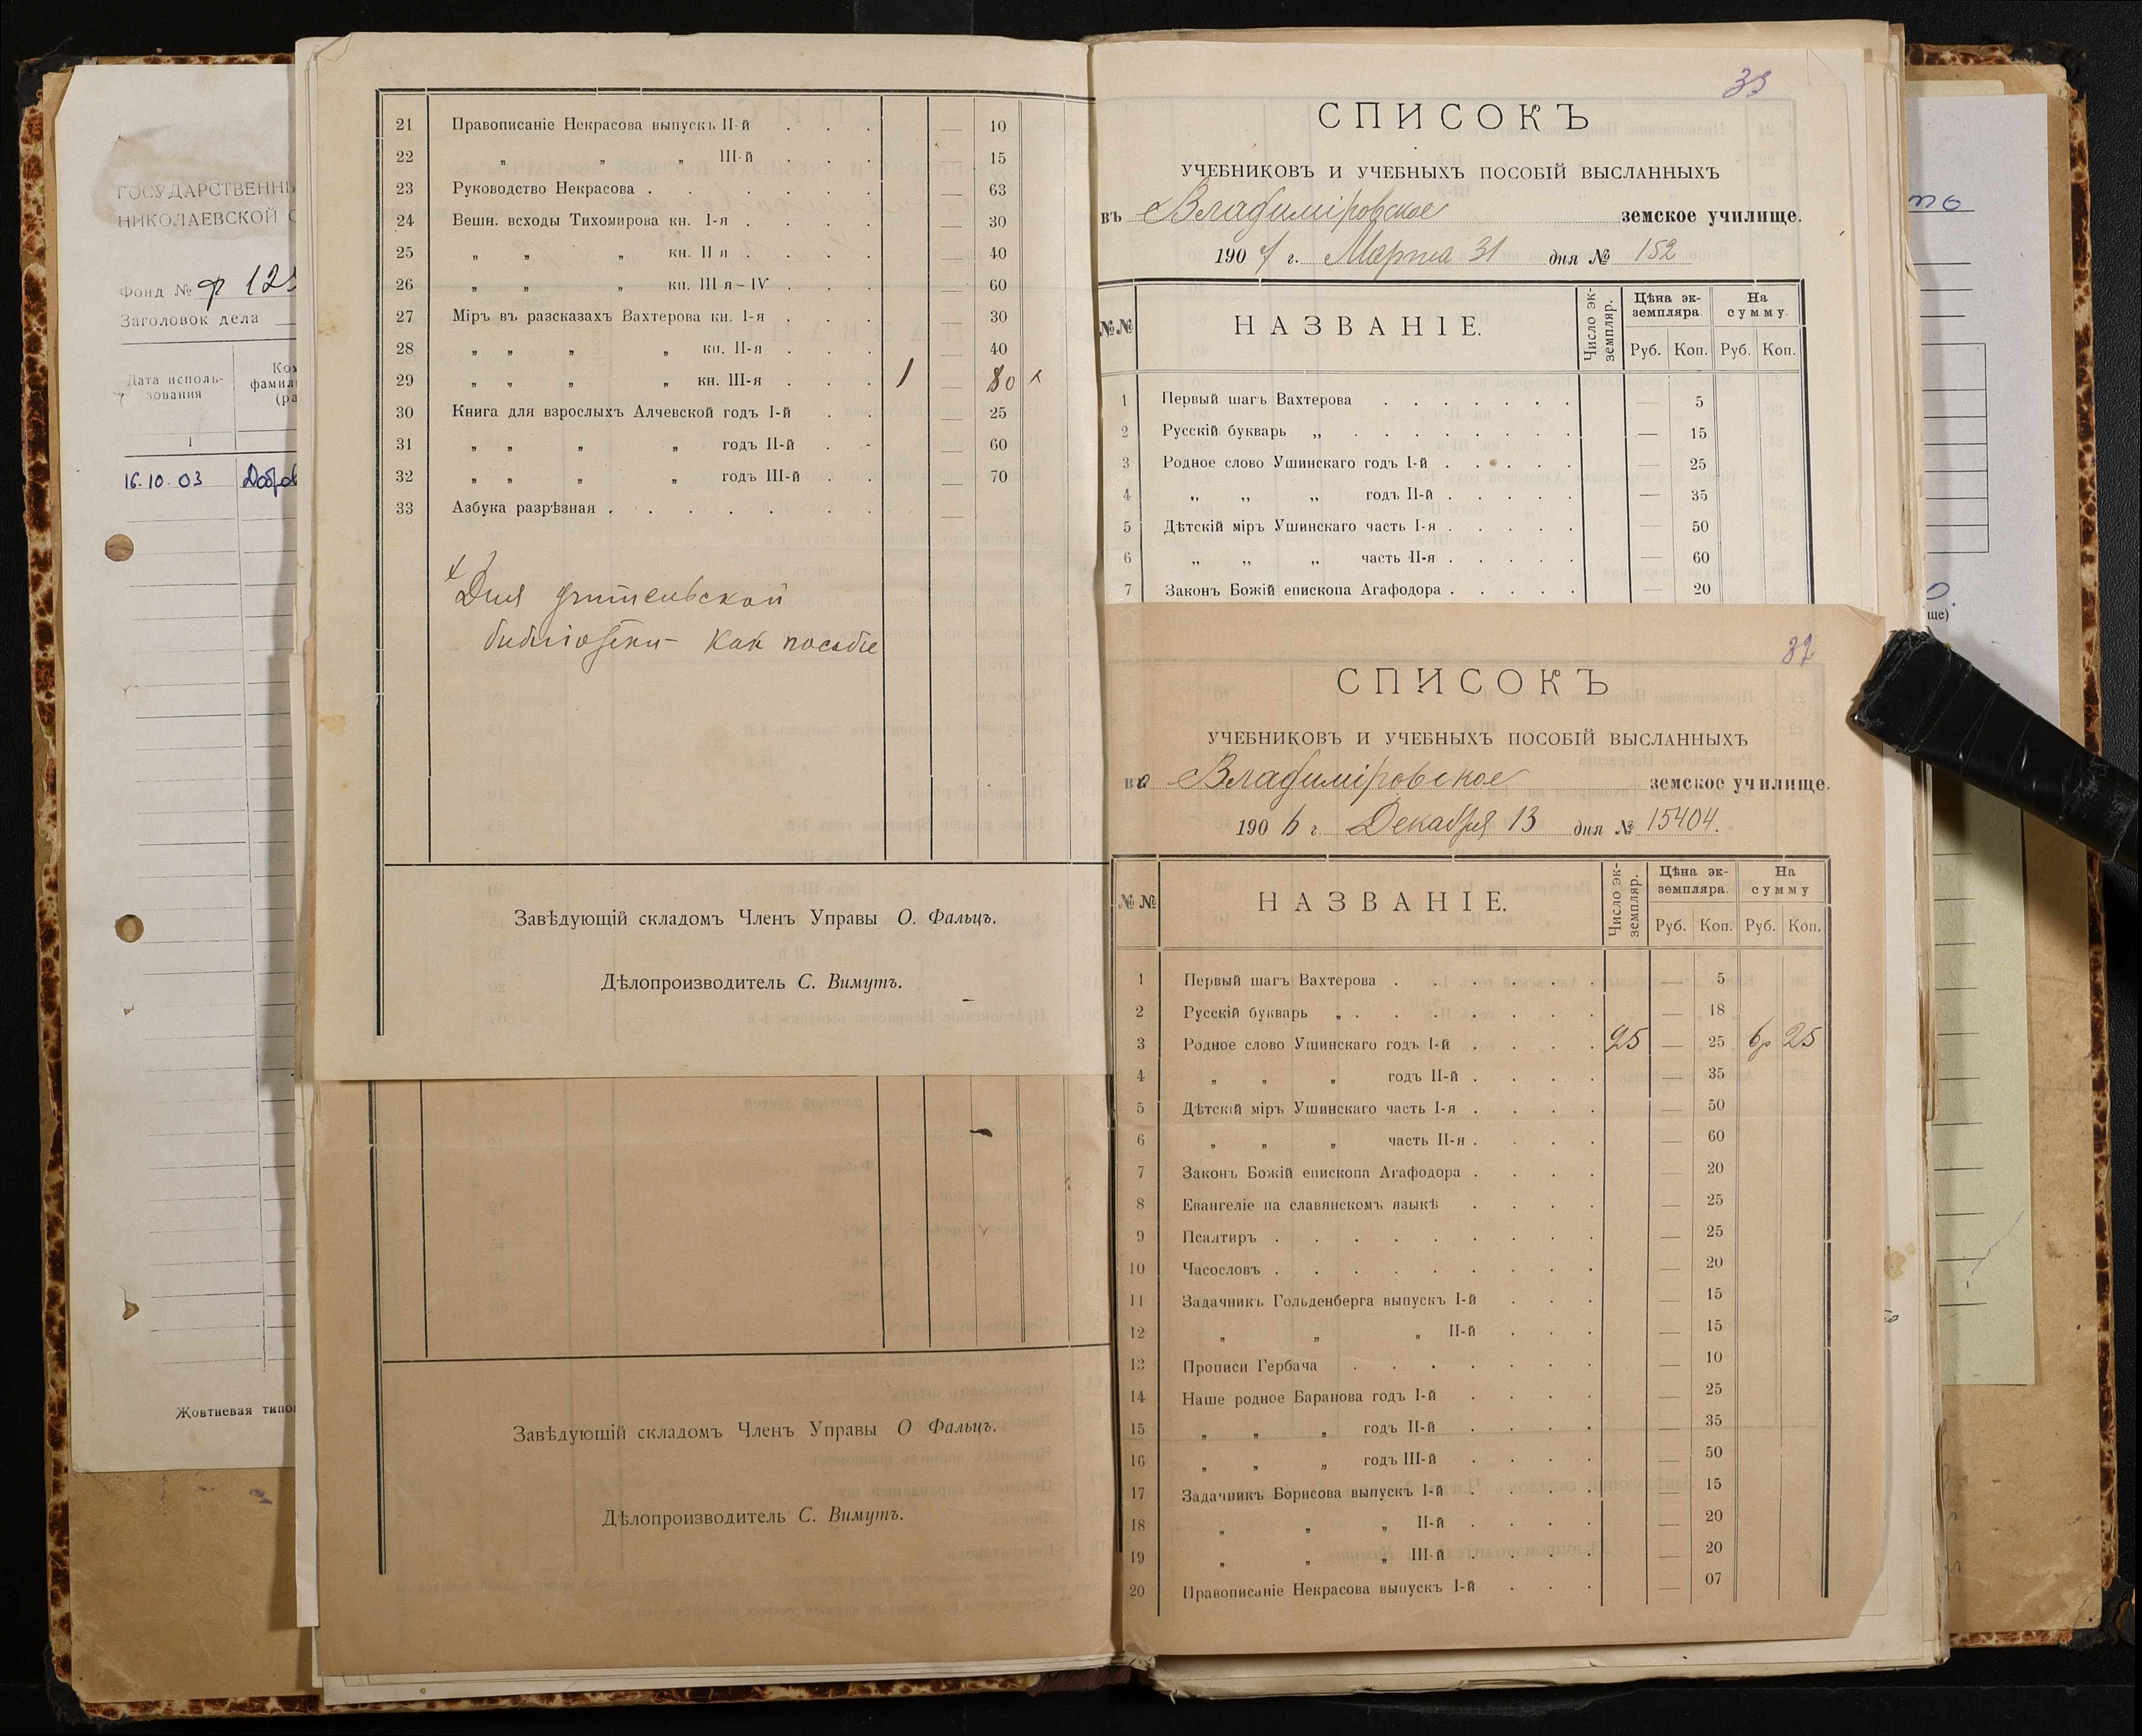 ГОСУДАРСТВЕНН
НИКОЛАЕВСКОЙ О
Фонд № Ф 125
Заголовок дела
Дата исполь-
зования
1
16.10.03
Жовтневая типо
21 Правописаніе Некрасова выпускъ II-й — 10
22 „ „ „ III-й — 15
23 Руководство Некрасова — 63
24 Вешн. всходы Тихомирова кн. I-я — 30
25 „ „ „ кн. II я — 40
26 „ „ „ кн. III я – IV — 60
27 Міръ въ разсказахъ Вахтерова кн. I-я — 30
28 „ „ „ „ кн. II-я — 40
29 „ „ „ „ кн. III-я 1 — 80 х
30 Книга для взрослыхъ Алчевской годъ I-й — 25
31 „ „ „ „ годъ II-й — 60
32 „ „ „ „ годъ III-й — 70
33 Азбука разрѣзная —
х Для учительской
библіотеки – как пособіе
Завѣдующій складомъ Членъ Управы О. Фальцъ.
Дѣлопроизводитель С. Вимутъ.
Завѣдующій складомъ Членъ Управы О Фальцъ.
Дѣлопроизводитель С. Вимутъ.
33
СПИСОКЪ
УЧЕБНИКОВЪ И УЧЕБНЫХЪ ПОСОБІЙ ВЫСЛАННЫХЪ
въ Владиміровское земское училище.
1907 г. Марта 31 дня № 152
№№ НАЗВАНІЕ. Число эк-земпляр. Цѣна эк-земпляра. На сумму.
Руб. Коп. Руб. Коп.
1 Первый шагъ Вахтерова — 5
2 Русскій букварь „ — 15
3 Родное слово Ушинскаго годъ I-й — 25
4 „ „ „ годъ II-й — 35
5 Дѣтскій міръ Ушинскаго часть I-я — 50
6 „ „ „ часть II-я — 60
7 Законъ Божій епископа Агафодора — 20
32
СПИСОКЪ
УЧЕБНИКОВЪ И УЧЕБНЫХЪ ПОСОБІЙ ВЫСЛАННЫХЪ
во Владиміровское земское училище.
1906 г. Декабря 13 дня № 15404.
№№ НАЗВАНІЕ. Число эк-земпляр. Цѣна эк-земпляра. На сумму
Руб. Коп. Руб. Коп.
1 Первый шагъ Вахтерова — 5
2 Русскій букварь „ — 18
3 Родное слово Ушинскаго годъ I-й 25 — 25 6р 25
4 „ „ „ годъ II-й — 35
5 Дѣтскій міръ Ушинскаго часть I-я — 50
6 „ „ „ часть II-я — 60
7 Законъ Божій епископа Агафодора — 20
8 Евангеліе на славянскомъ языкѣ — 25
9 Псалтирь — 25
10 Часословъ — 20
11 Задачникъ Гольденберга выпускъ I-й — 15
12 „ „ „ II-й — 15
13 Прописи Гербача — 10
14 Наше родное Баранова годъ I-й — 25
15 „ „ „ годъ II-й — 35
16 „ „ „ годъ III-й — 50
17 Задачникъ Борисова выпускъ I-й — 15
18 „ „ „ II-й — 20
19 „ „ „ III-й — 20
20 Правописаніе Некрасова выпускъ I-й — 07